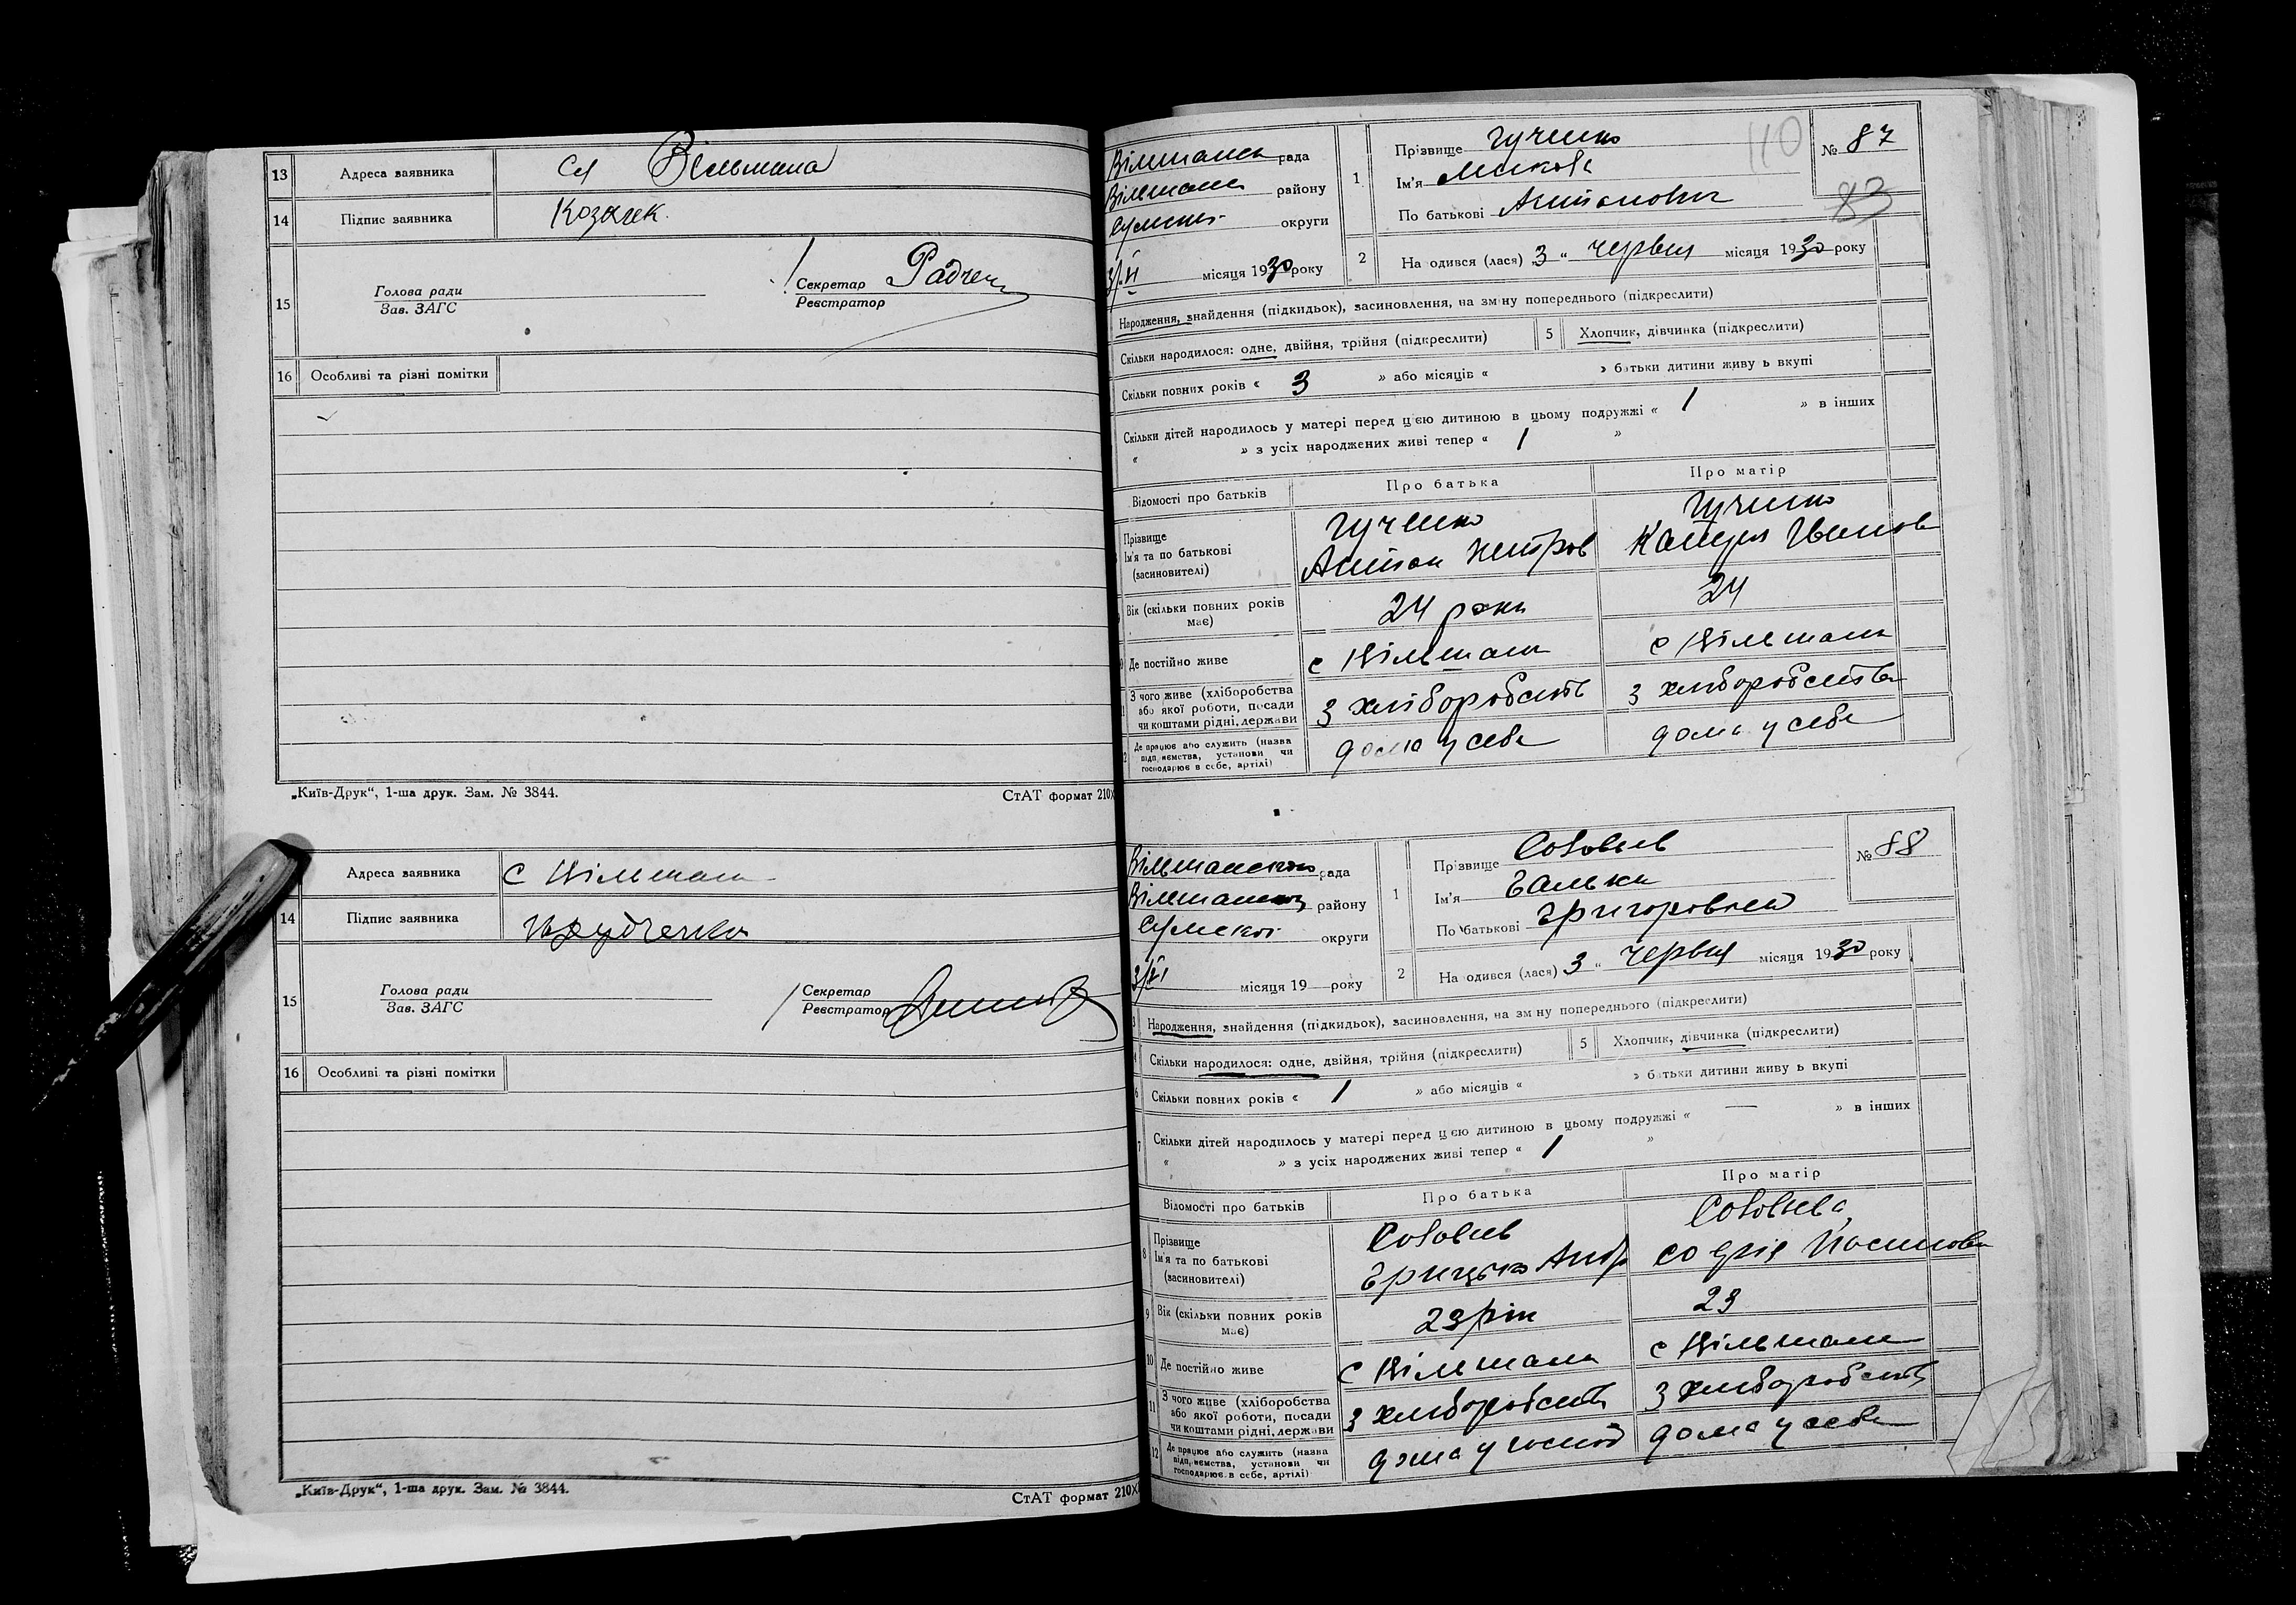 13 Адреса заявника Сл Вільшана
14 Підпис заявника Козачек
15 Голова ради
Зав. ЗАГС
Секретар
Реєстратор
16 Особливі та різні помітки
„Київ-Друк“, 1-ша друк. Зам. № 3844.
СтАТ формат 210×
Адреса заявника С Вільшана
14 Підпис заявника
15 Голова ради
Зав. ЗАГС
Секретар
Реєстратор
16 Особливі та різні помітки
„Київ-Друк“, 1-ша друк. Зам. № 3844.
СтАТ формат 210×
110
№ 87
83
рада
району
Сумської округи
3/VI місяця 1930 року
1 Прізвище
Ім'я Микола
По батькові Антонович
2 На одився (лася) 3 “ червня місяця 1930 року
Народження, знайдення (підкидьок), засиновлення, на зм ну попереднього (підкреслити)
Скільки народилося: одне, двійня, трійня (підкреслити) 5 Хлопчик, дівчинка (підкреслити)
Скільки повних років « 3 » або місяців « » батьки дитини живу ь вкупі
Скільки дітей народилось у матері перед цією дитиною в цьому подружжі « 1 » в інших
« » з усіх народжених живі тепер « 1 »
Відомості про батьків Про батька Про матір
Прізвище
Ім'я та по батькові Антон Петров
(засиновителі)
Вік (скільки повних років має) 24 роки 24
Де постійно живе с Вільшана с Вільшана
З чого живе (хліборобства або якої роботи, посади чи коштами рідні, держави з хліборобств з хліборобства
Де працює або служить (назва підп. ємства, установи чи господарює в себе, артілі) дома у себе дома у себе
№ 88
Вільшанської рада
Вільшанськ району
Сумської округи
3/VI місяця 19 року
1 Прізвище Соловьев
Ім'я Галька
По батькові Григоровна
2 На одився (лася) 3 “ червня місяця 1930 року
3 Народження, знайдення (підкидьок), засиновлення, на зм ну попереднього (підкреслити)
4 Скільки народилося: одне, двійня, трійня (підкреслити) 5 Хлопчик, дівчинка (підкреслити)
6 Скільки повних років « 1 » або місяців « » батьки дитини живу ь вкупі
7 Скільки дітей народилось у матері перед цією дитиною в цьому подружжі « — » в інших
« » з усіх народжених живі тепер « 1 »
Відомості про батьків Про батька Про матір
8 Прізвище Соловьев Соловьева
Ім'я та по батькові Грицько Андр
(засиновителі)
9 Вік (скільки повних років має) 23 23
10 Де постійно живе с Вільшана с Вільшана
11 З чого живе (хліборобства або якої роботи, посади чи коштами рідні, держави з хліборобств з хліборобств
12 Де працює або служить (назва підп. ємства, установи чи господарює в себе, артілі) дома у дома у себе